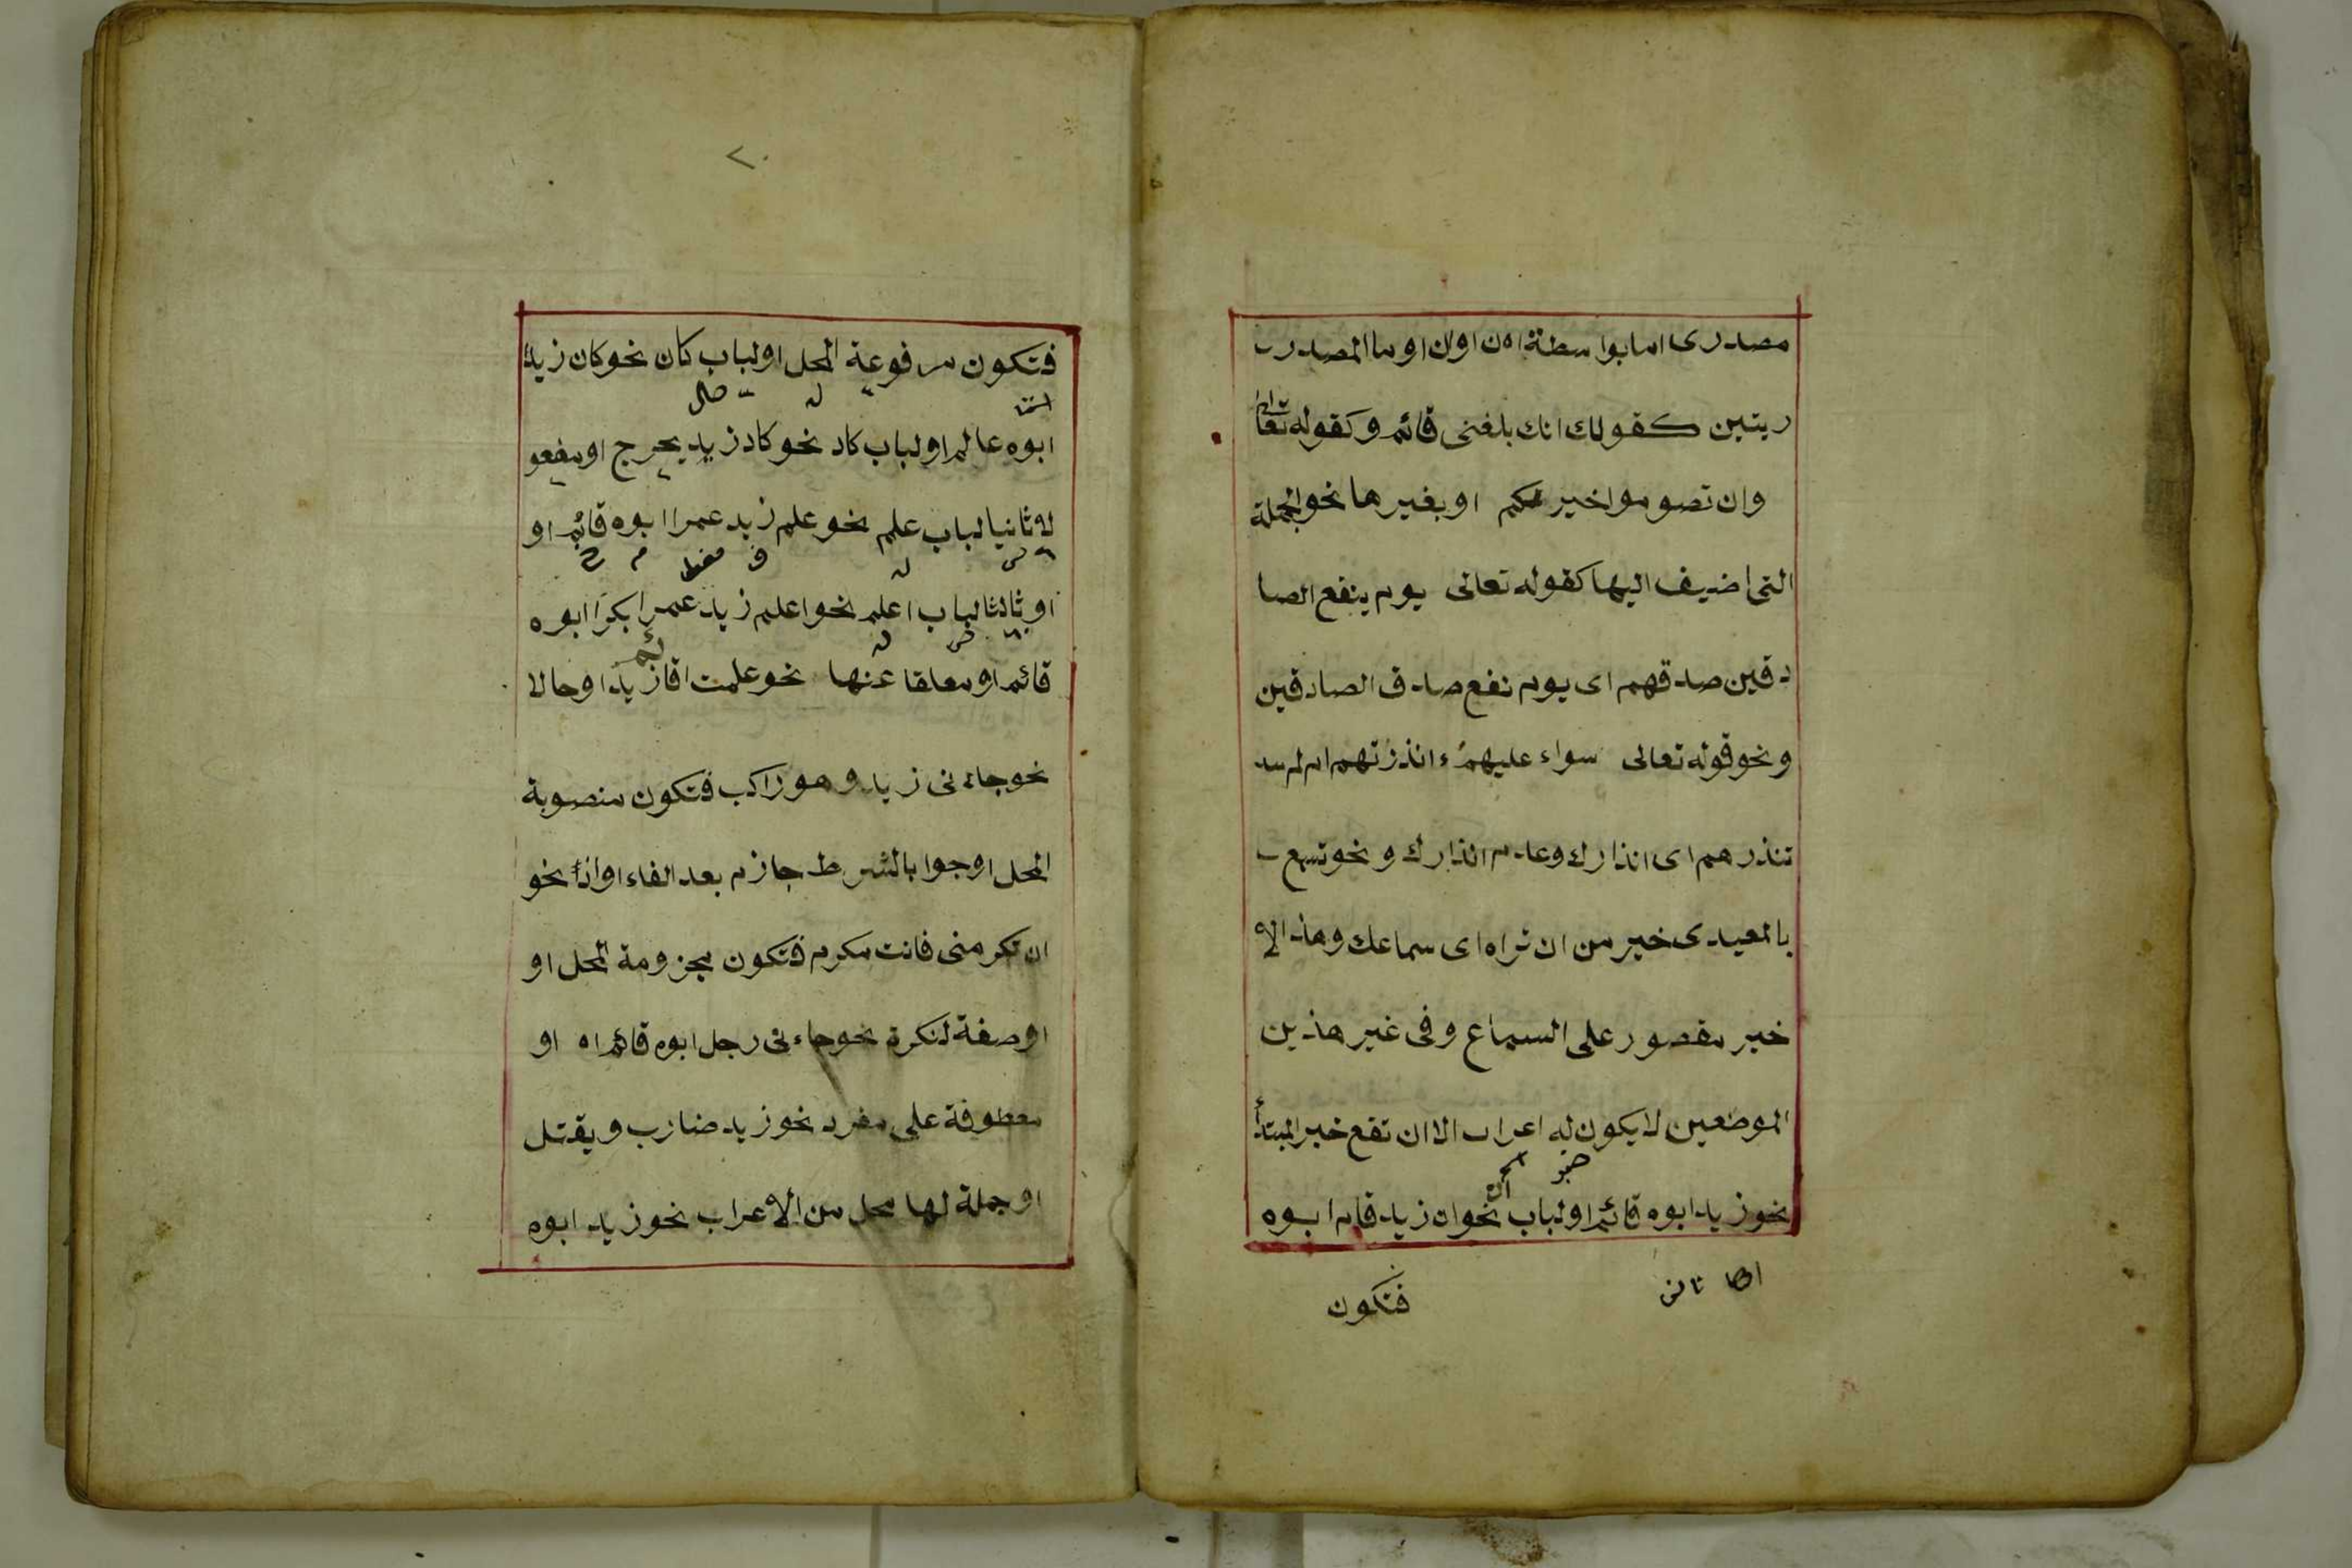 مصدرى اما بواسطة ان او ان او ما المصدر
ريتين كقولك انك بلغنى قائم وكقوله تعالى
وان تصوموا خير لكم او بغيرها نحو الجملة
التى اضيف اليها كقوله تعالى يوم ينفع الصا
دقين صدقهم اى يوم نفع صدق الصادقين
ونحو قوله تعالى سواء عليهم ءانذرتهم ام لم
تنذرهم اى انذارك وعدم انذارك ونحو تسمع
بالمعيدى خير من ان تراه اى سماعك وهذا الا
خير مقصور على السماع وفى غير هذين
الموضعين لا يكون له اعراب الا ان تقع خبر المبتدأ
نحو زيد ابوه قائم او لباب ان نحو ان زيد قام ابوه
فتكون
٢٠
فتكون مرفوعة المحل او لباب كان نحو كان زيد
ابوه عالم او لباب كاد نحو كاد زيد يخرج او مفعو
لا ثانيا لباب علم نحو علم زيد عمرا ابوه قائم او
او ثالثا لباب اعلم نحو اعلم زيد عمرا بكرا ابوه
قائم او معلقا عنها نحو علمت اقائم زيد او حالا
نحو جاءنى زيد وهو راكب فتكون منصوبة
المحل او جوابا لشرط جازم بعد الفاء او اذا نحو
ان تكرمنى فانت مكرم فتكون مجزومة المحل او
او صفة لنكرة نحو جاءنى رجل ابوه قائم اه او
معطوفة على مفرد نحو زيد ضارب ويقتل
او جملة لها محل من الاعراب نحو زيد ابوه